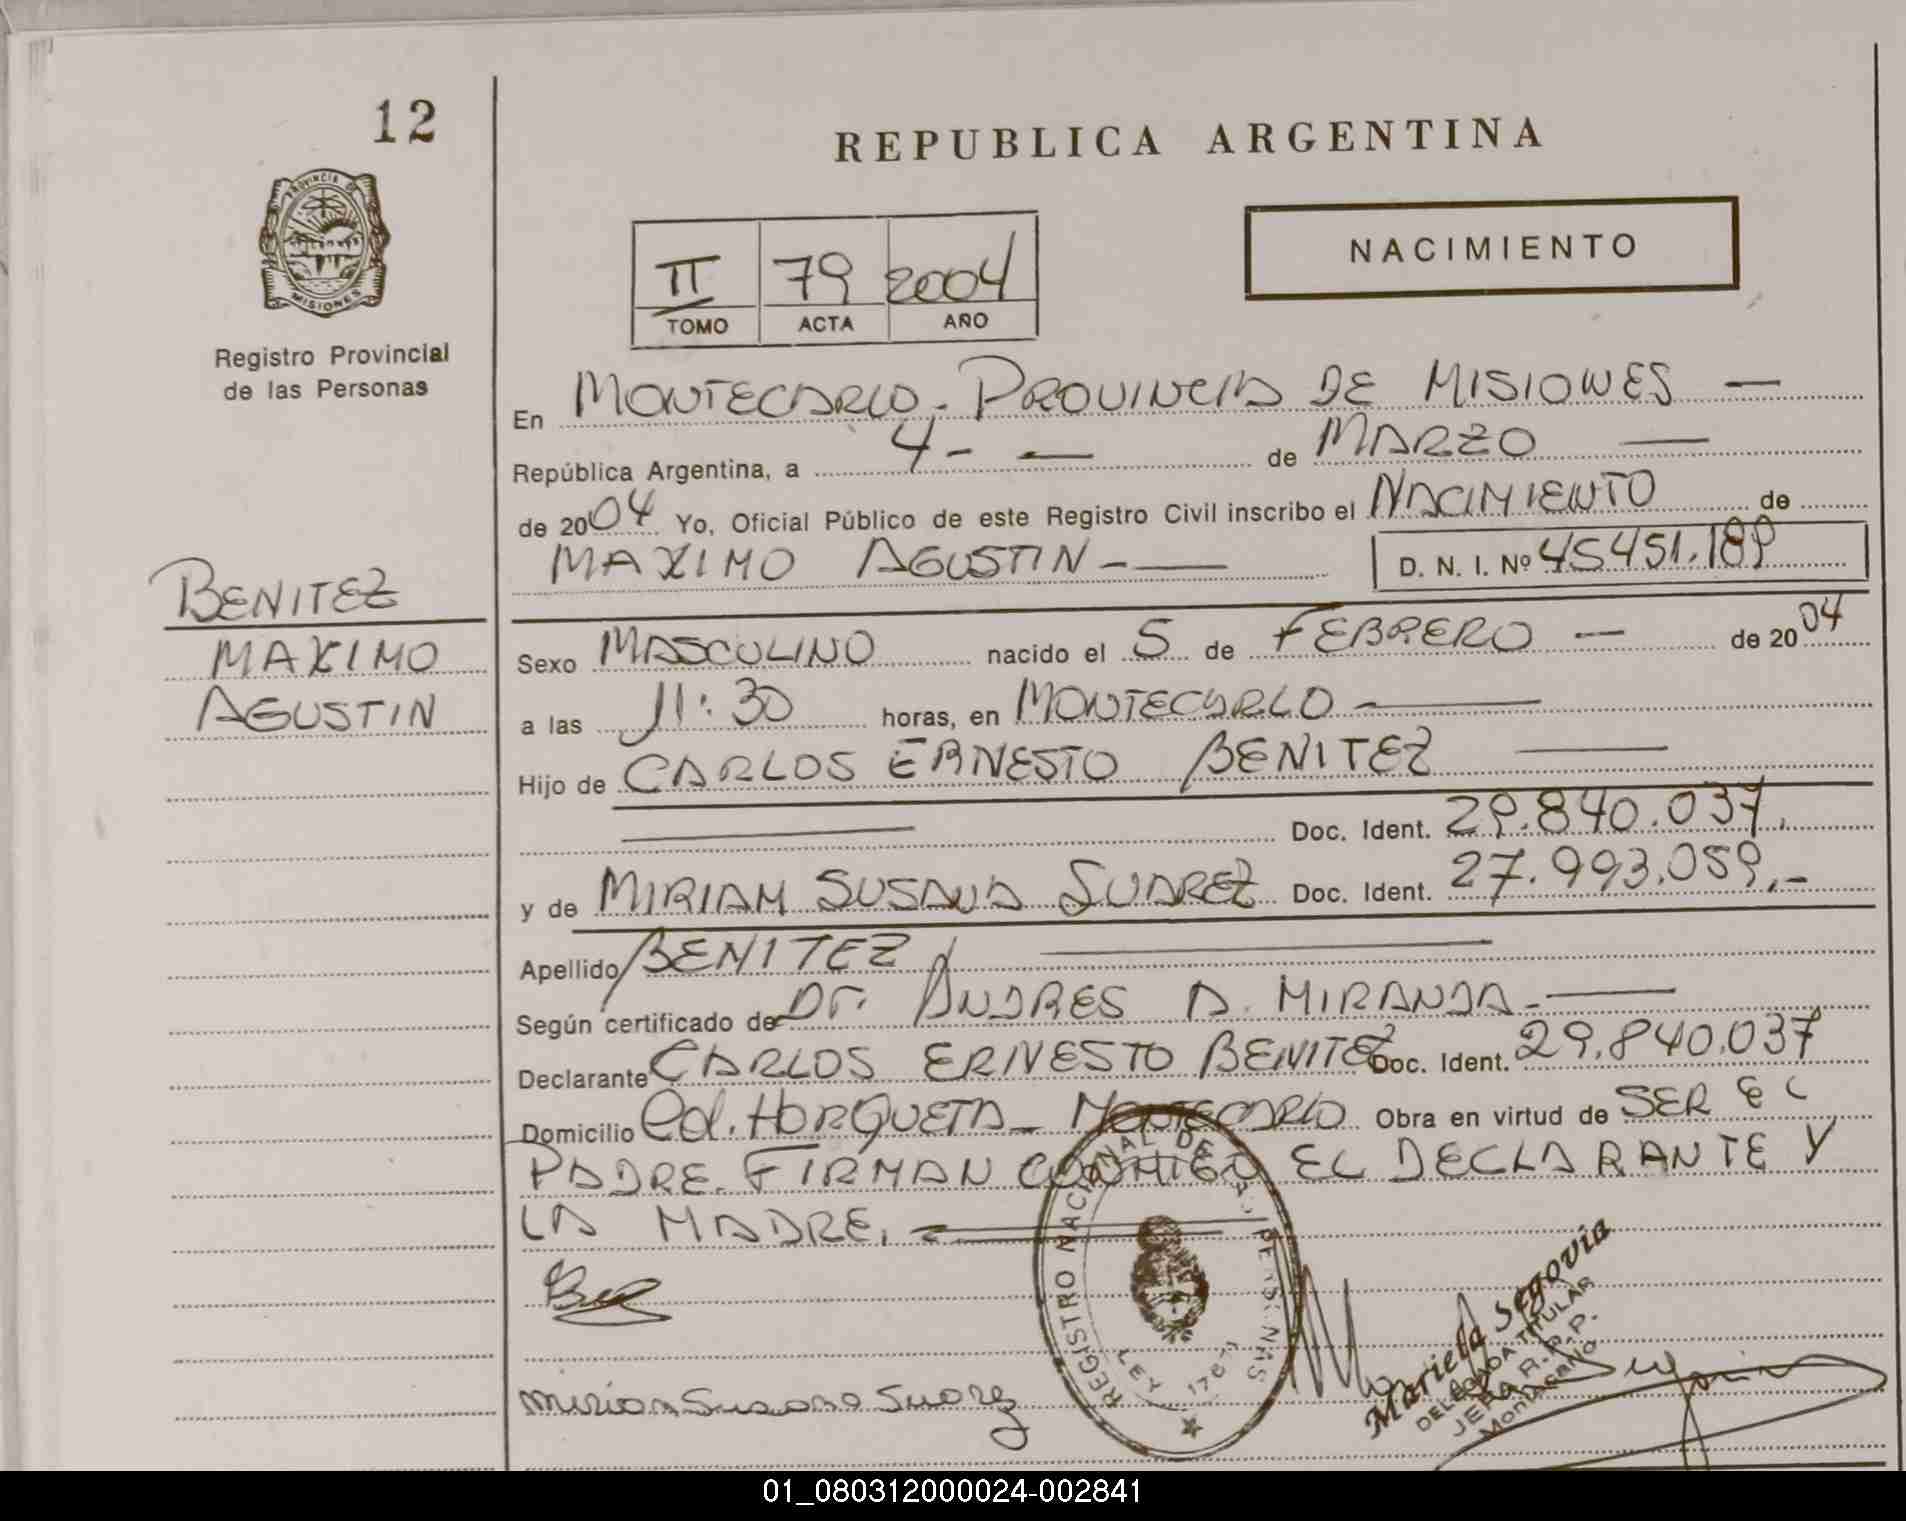 12
REPUBLICA ARGENTINA
PROVINCIA DE
MISIONES
Registro Provincial
de las Personas
II 79 2004
TOMO ACTA AÑO
NACIMIENTO
En MONTECARLO - PROVINCIA DE MISIONES —
República Argentina, a 4 - — de MARZO —
de 2004 Yo, Oficial Público de este Registro Civil inscribo el NACIMIENTO de
MAXIMO AGUSTIN - — D. N. I. Nº 45451.189
BENITEZ
MAXIMO
AGUSTIN
Sexo MASCULINO nacido el 5 de FEBRERO — de 2004
a las 11:30 horas, en MONTECARLO - —
Hijo de CARLOS ERNESTO BENITEZ —
— Doc. Ident. 29.840.037.
y de MIRIAM SUSANA SUAREZ Doc. Ident. 27.993.059.-
Apellido BENITEZ —
Según certificado de Dr. ANDRES A. MIRANDA - —
Declarante CARLOS ERNESTO BENITEZ Doc. Ident. 29.840.037
Domicilio Col. HORQUETA - MONTECARLO Obra en virtud de SER EL
PADRE. FIRMAN CONMIGO EL DECLARANTE Y
LA MADRE. —
REGISTRO NACIONAL DE LAS PERSONAS
LEY 1767
Miriam Susana Suarez
Mariela Segovia
DELEGADA TITULAR
01_080312000024-002841